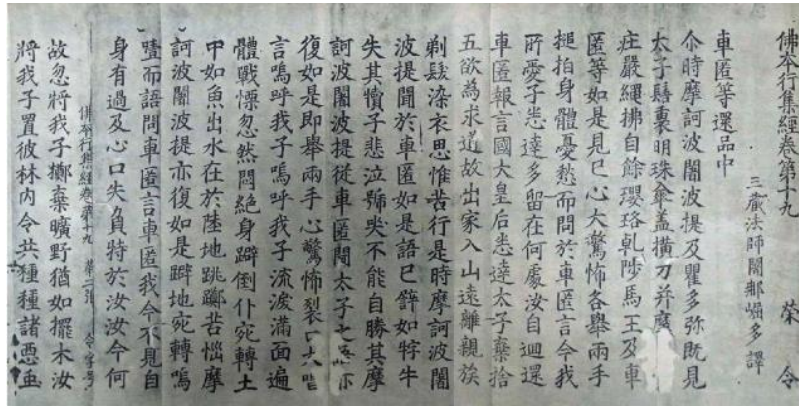 佛本行集經卷第十九 榮 令
三藏法師闍那崛多譯
車匿等還品中
尒時摩訶波闍波提及瞿多弥既見
太子髻裹明珠傘盖橫刀并
庄嚴繩拂自餘瓔珞乹陟馬王及車
匿等如是見已心大驚怖各舉兩手
搥拍身體憂愁而問於車匿言今我
所愛子悉達多留在何處汝自迴還
車匿報言國大皇后悉達太子棄捨
五欲為求道故出家入山遠離親族
剃髮染衣思惟苦行是時摩訶波闍
波提聞於車匿如是語已辟如牸牛
失其犢子悲泣號哭不能自勝其摩
訶波闍波提從車匿聞太子
復如是即舉兩手心驚怖裂
言嗚呼我子嗚呼我子流淚滿面遍
體戰慄忽然悶絕身躃倒仆宛轉土
中如魚出水在於陸地跳躑苦惱摩
訶波闍波提亦復如是躃地宛轉嗚
噎而語問車匿言車匿我今不見自
身有過及心口失負特於汝汝今何
佛本行集經卷第十九 第二張 令字号
故忽將我子擲棄曠野猶如擺木汝
將我子置彼林内令共種種諸惡虫